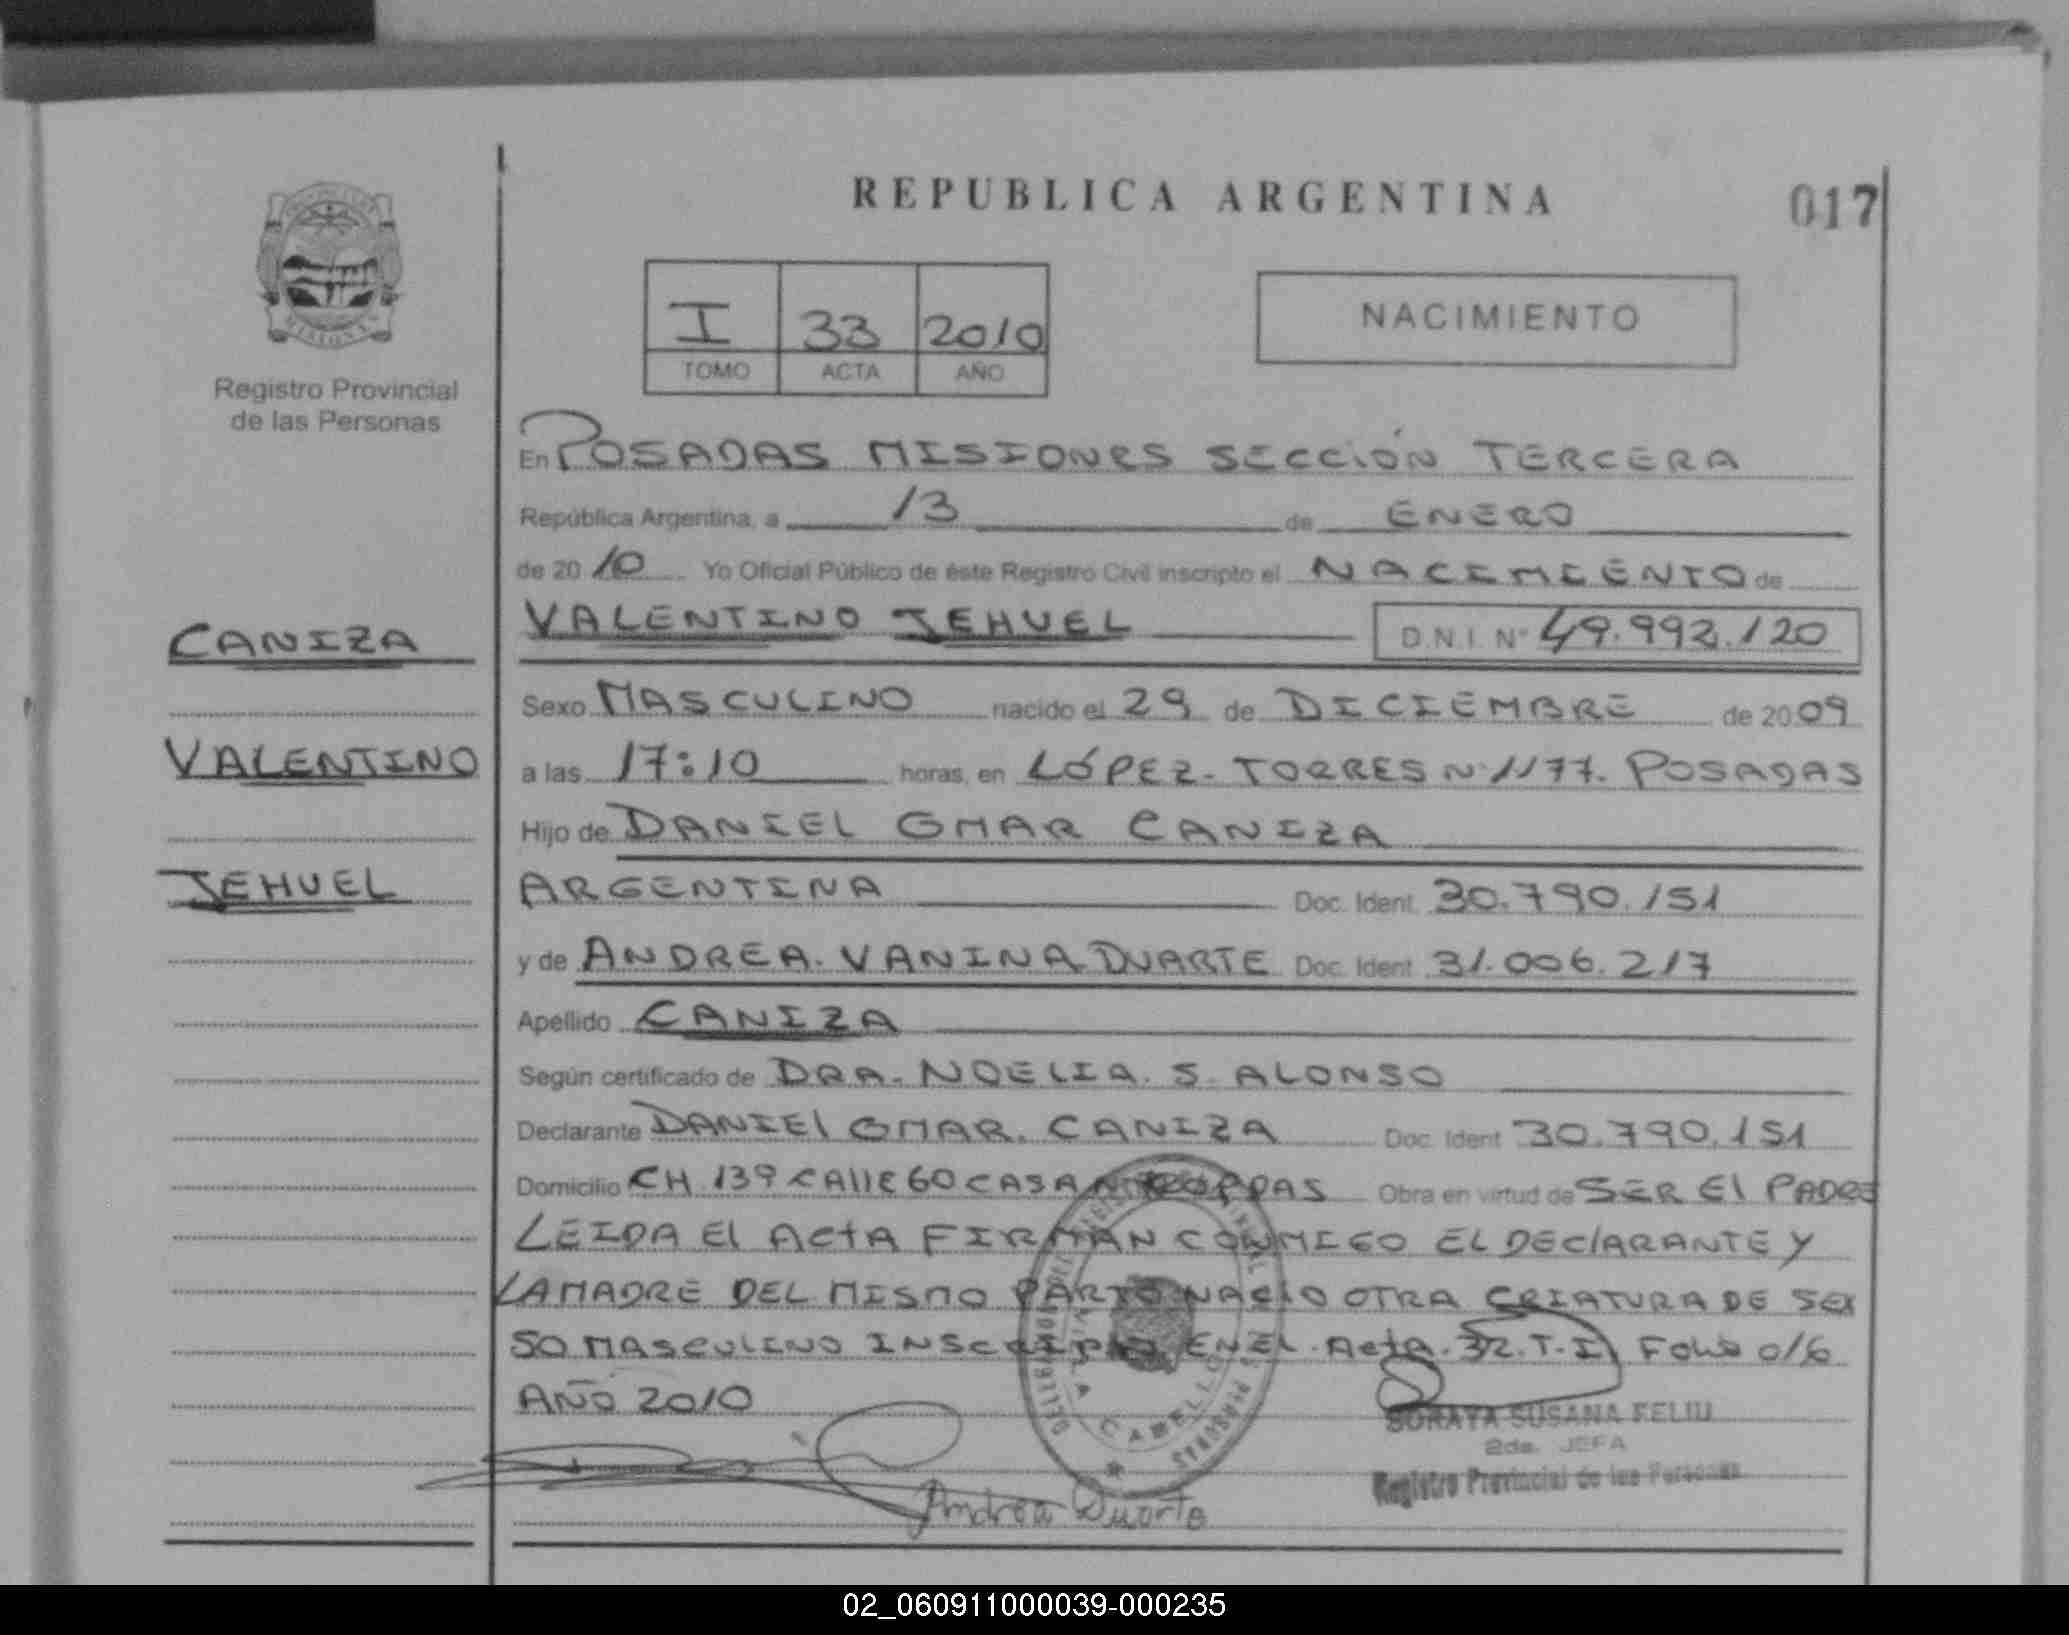 REPUBLICA ARGENTINA
017
I 33 2010
TOMO ACTA AÑO
NACIMIENTO
Registro Provincial
de las Personas
En POSADAS MISIONES SECCIÓN TERCERA
República Argentina, a 13 de ENERO
de 20 10 Yo Oficial Público de éste Registro Civil inscripto el NACIMIENTO de
VALENTINO JEHUEL D.N.I. Nº 49.992.120
CANIZA
VALENTINO
JEHUEL
Sexo MASCULINO nacido el 29 de DICIEMBRE de 20 09
a las 17:10 horas, en LÓPEZ- TORRES Nº 1177. POSADAS
Hijo de DANIEL OMAR CANIZA
ARGENTINA Doc. Ident. 30.790.151
y de ANDREA. VANINA DUARTE Doc. Ident 31.006.217
Apellido CANIZA
Según certificado de DRA. NOELIA. S. ALONSO
Declarante DANIEl OMAR. CANIZA Doc. Ident 30.790.151
Domicilio CH 139 CAllE 60 CASA Obra en virtud de SER El PADRE
LEIDA El ActA FIRMAN CONMIGO EL DEClARANTE Y
LA MADRE DEL MISMO PARTO NACIO OTRA CRIATURA DE SEX
SO MASCULINO INSCRIPTO EN EL. Acta. 32. T-I Folio 016
AÑO 2010
CABELLO
SORAYA SUSANA FELIU
2da. JEFA
Registro Provincial de las Personas
Andrea Duarte
02_060911000039-000235